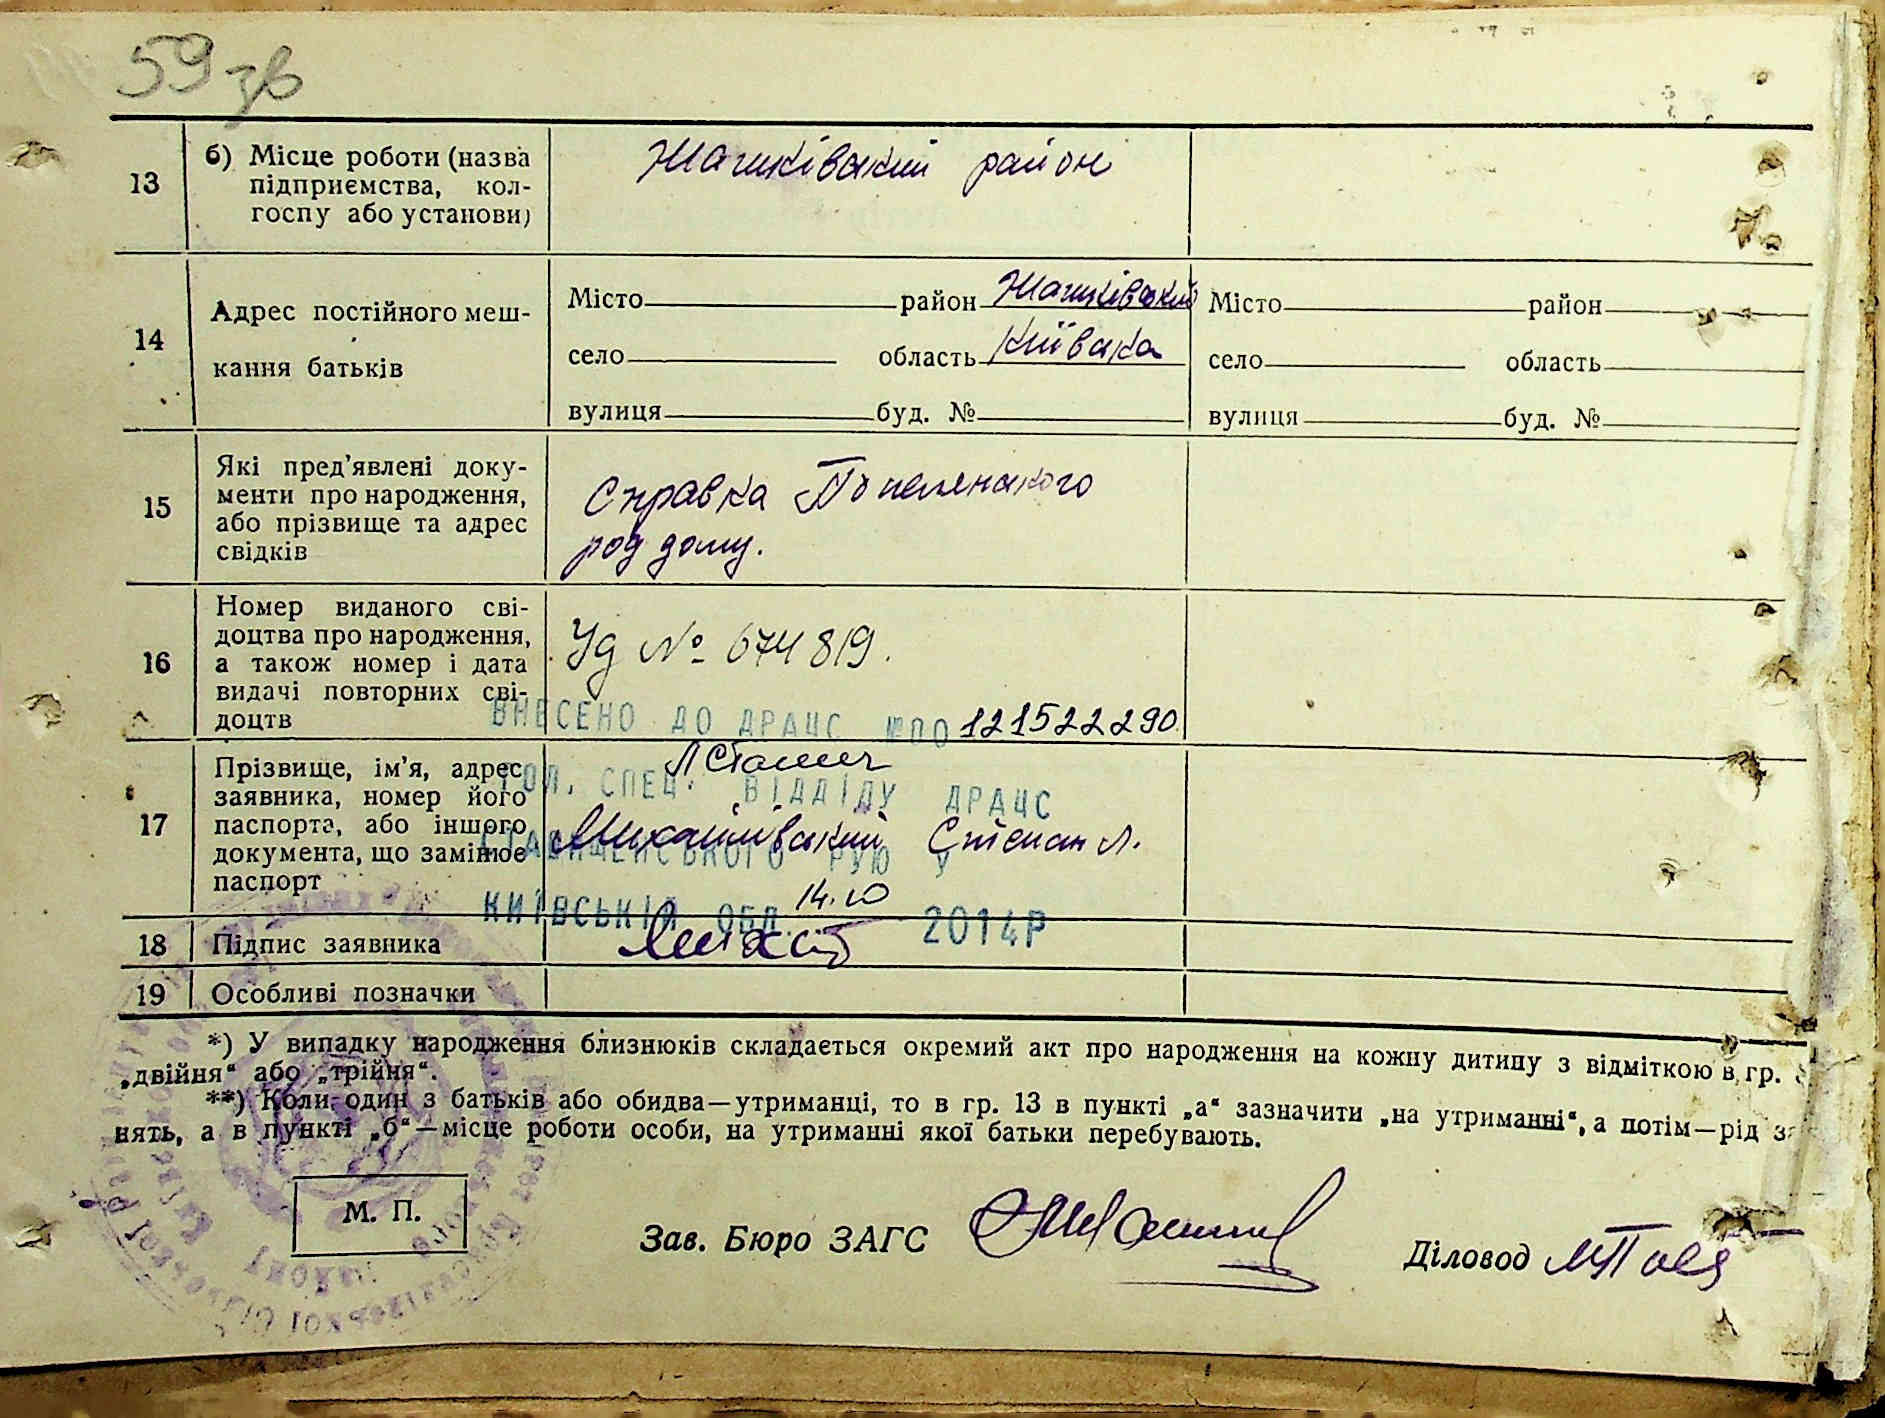 59 зв
13
б) Місце роботи (назва
підприємства, кол-
госпу або установи)
Жашківский район
14
Адрес постійного меш-
кання батьків
Місто район Жашківский
село область Київска
вулиця буд. №
Місто район
село область
вулиця буд. №
15
Які пред'явлені доку-
менти про народження,
або прізвище та адрес
свідків
Справка
род дому.
16
Номер виданого сві-
доцтва про народження,
а також номер і дата
видачі повторних сві-
доцтв
№ 674819.
ВНЕСЕНО ДО ДРАЦС №ПО 121522290
17
Прізвище, ім'я, адрес
заявника, номер його
паспорта, або іншого
документа, що замінює
паспорт
ГОЛ. СПЕЦ. ВІДДІЛУ ДРАЦС
Михайлівський Степан Л.
СТАВИЩЕНСЬКОГО РУЮ У
КИЇВСЬКІЙ ОБЛ. 14.10 2014Р
18
Підпис заявника
19
Особливі позначки
*) У випадку народження близнюків складається окремий акт про народження на кожну дитину з відміткою в гр.
„двійня“ або „трійня“.
**) Коли один з батьків або обидва—утриманці, то в гр. 13 в пункті „а“ зазначити „на утриманні“, а потім—рід
нять, а в пункті „б“—місце роботи особи, на утриманні якої батьки перебувають.
М. П.
Зав. Бюро ЗАГС
Діловод